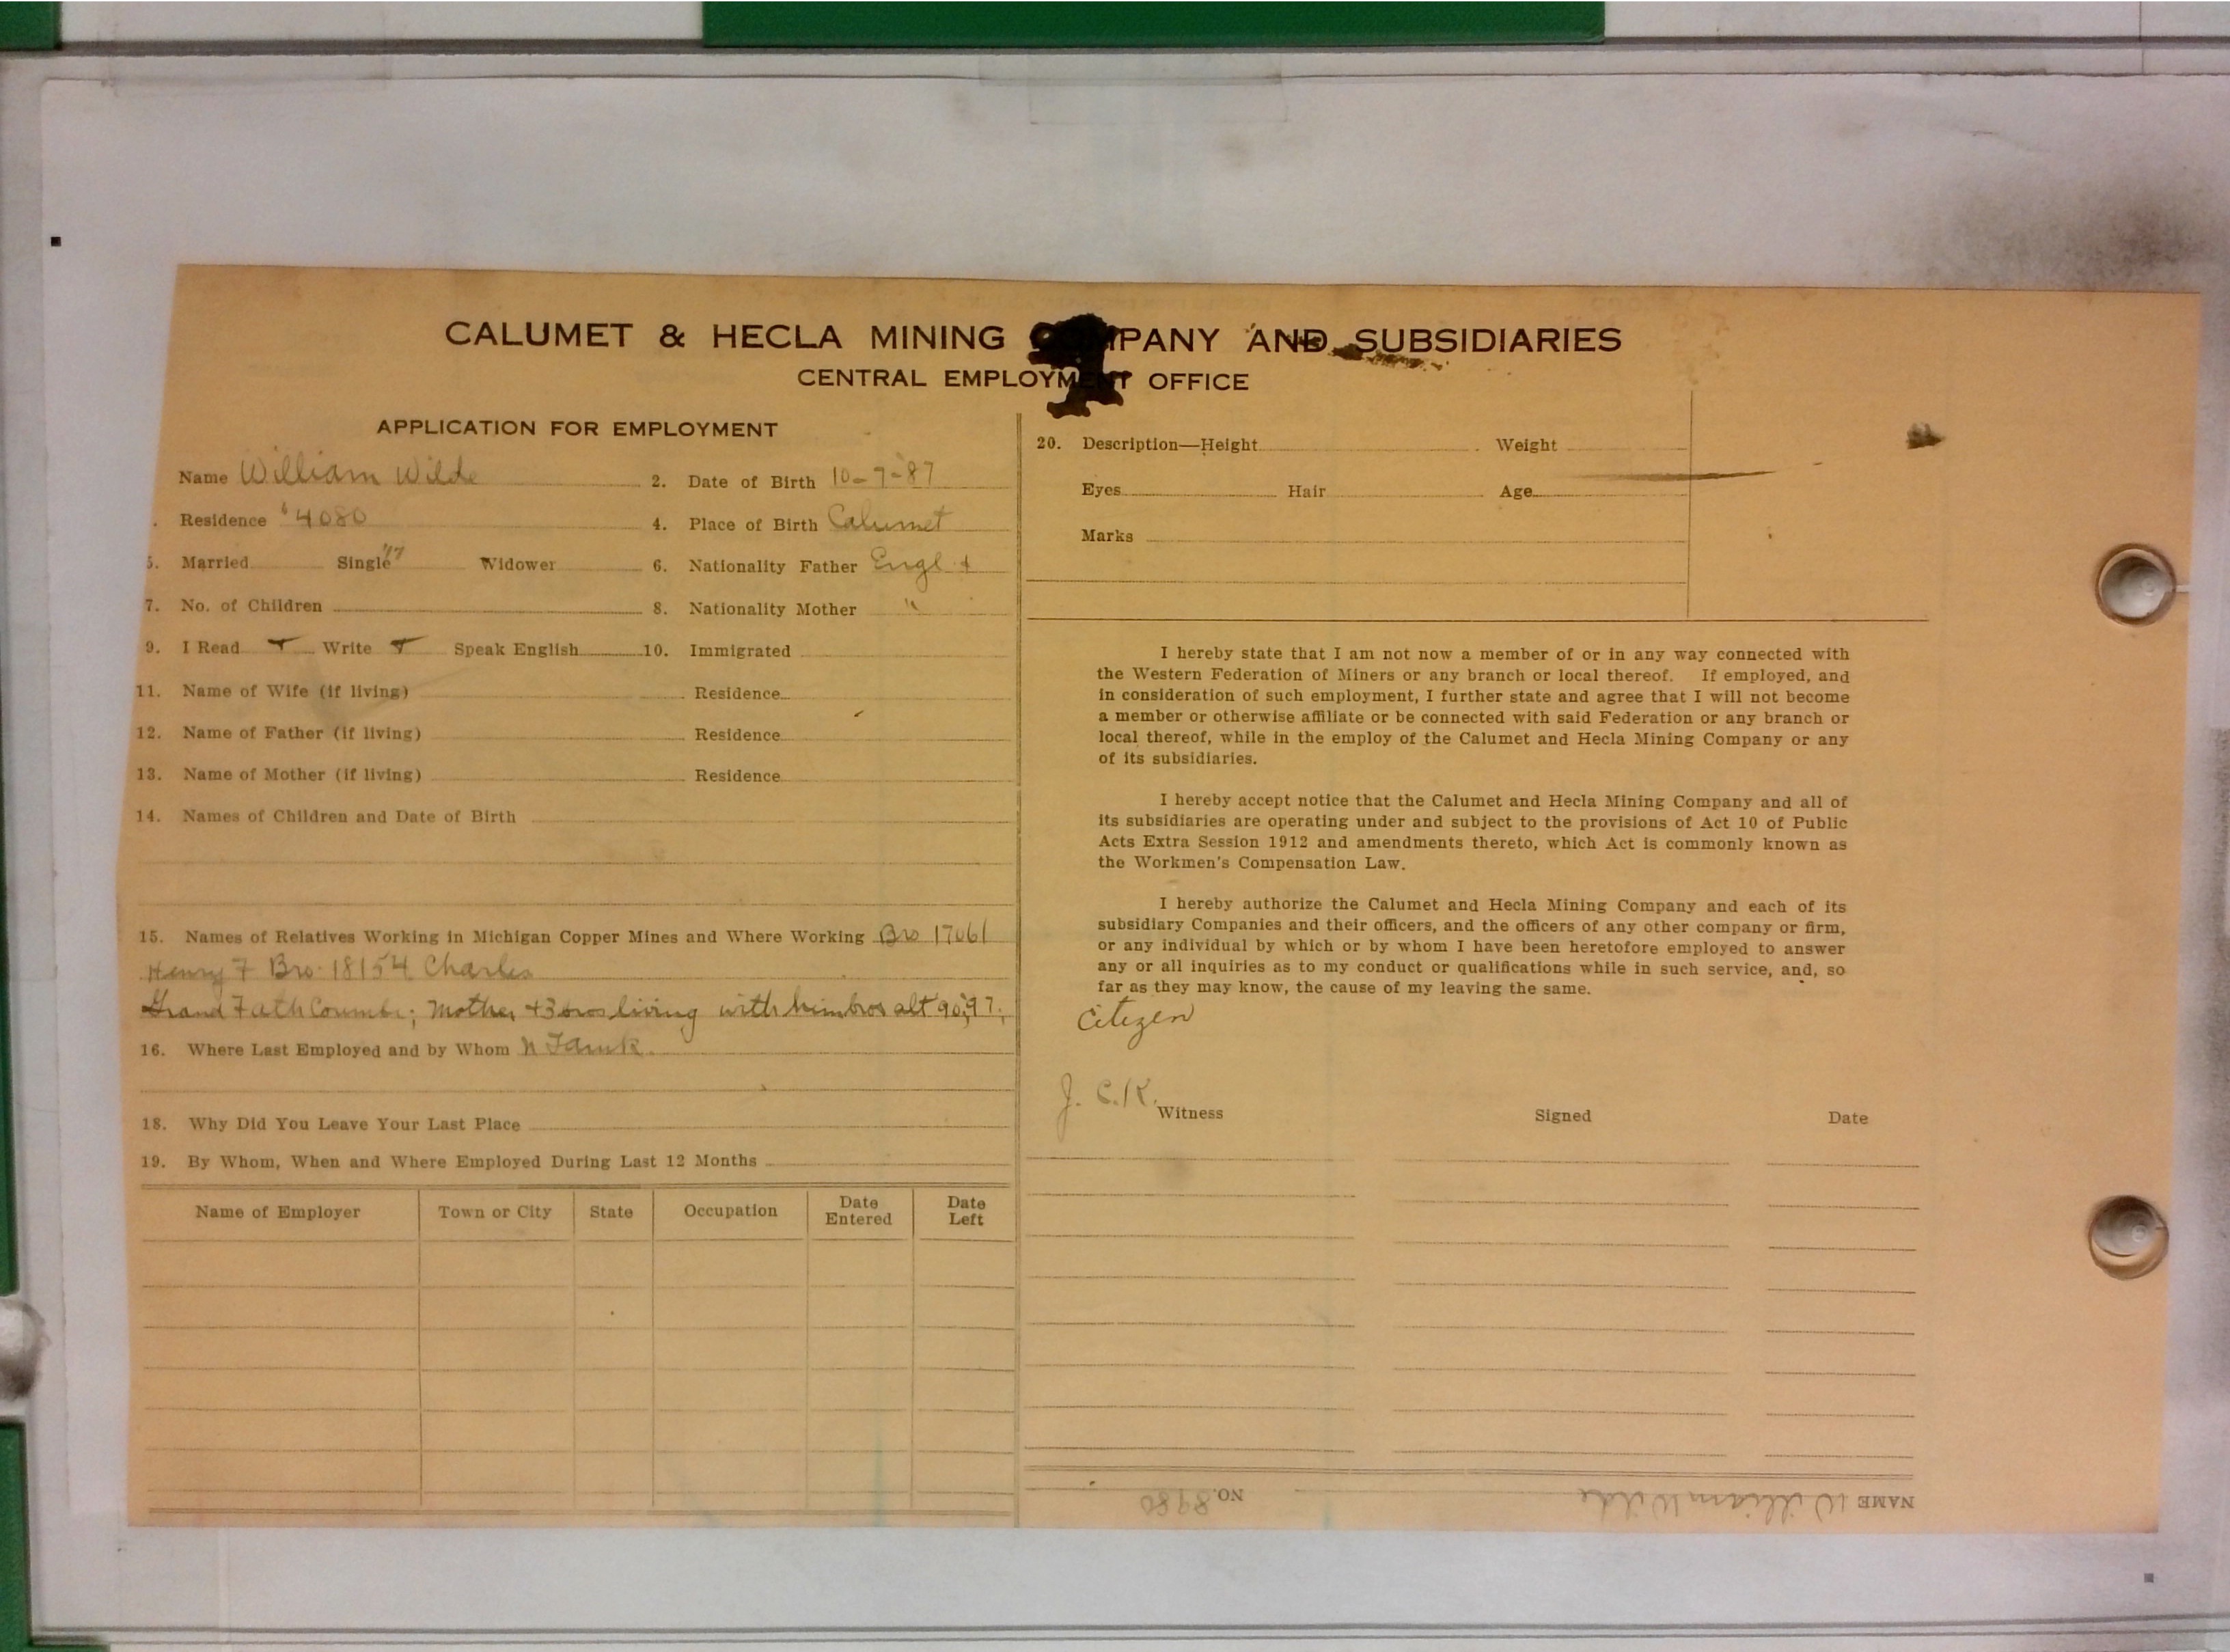 CALUMET & HECLA MINING COMPANY AND SUBSIDIARIES
CENTRAL EMPLOYMENT OFFICE
APPLICATION FOR EMPLOYMENT
Name William Wilde 2. Date of Birth 10-7-87
. Residence 4080 4. Place of Birth Calumet
5. Married Single "17 Widower 6. Nationality Father Engl
7. No. of Children 8. Nationality Mother "
9. I Read Write Speak English 10. Immigrated
11. Name of Wife (if living) Residence
12. Name of Father (if living) Residence
13. Name of Mother (if living) Residence
14. Names of Children and Date of Birth
15. Names of Relatives Working in Michigan Copper Mines and Where Working Bro 17061
Henry F Bro. 18154 Charles
Grand Fath ; Mother +3 bros living with him bros alt 90, 97,
16. Where Last Employed and by Whom
18. Why Did You Leave Your Last Place
19. By Whom, When and Where Employed During Last 12 Months
Name of Employer Town or City State Occupation Date Entered Date Left
20. Description—Height Weight
Eyes Hair Age
Marks
I hereby state that I am not now a member of or in any way connected with
the Western Federation of Miners or any branch or local thereof. If employed, and
in consideration of such employment, I further state and agree that I will not become
a member or otherwise affiliate or be connected with said Federation or any branch or
local thereof, while in the employ of the Calumet and Hecla Mining Company or any
of its subsidiaries.
I hereby accept notice that the Calumet and Hecla Mining Company and all of
its subsidiaries are operating under and subject to the provisions of Act 10 of Public
Acts Extra Session 1912 and amendments thereto, which Act is commonly known as
the Workmen's Compensation Law.
I hereby authorize the Calumet and Hecla Mining Company and each of its
subsidiary Companies and their officers, and the officers of any other company or firm,
or any individual by which or by whom I have been heretofore employed to answer
any or all inquiries as to my conduct or qualifications while in such service, and, so
far as they may know, the cause of my leaving the same.
Citizen
J. C. K. Witness Signed Date
NAME William Wilde NO. 8980